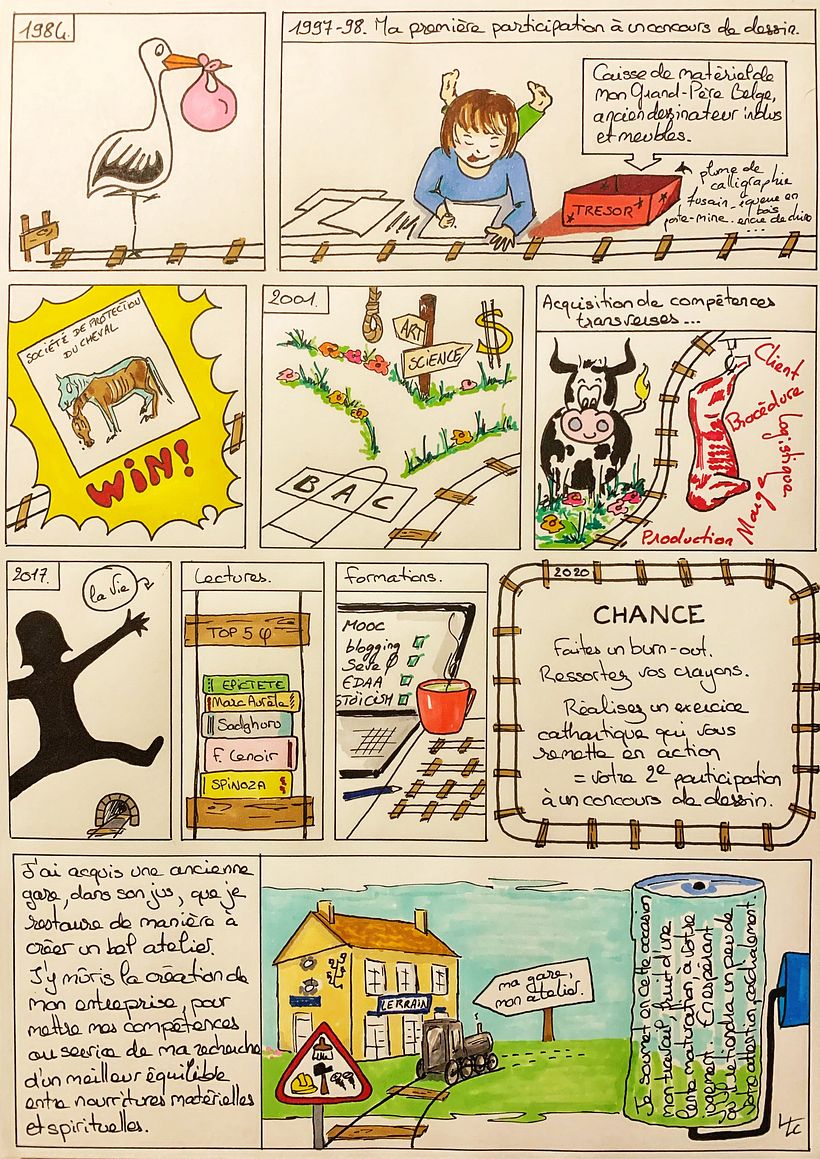 1984.
1997-98. Ma première participation à un concours de dessin.
Caisse de matériel de
mon Grand-Père Belge,
ancien dessinateur indus
et meubles.
TRESOR
plume de
calligraphie
fusain -
bois
porte-mine. encre de chine
...
SOCIÉTÉ DE PROTECTION
DU CHEVAL
WIN!
2001.
ART
$
SCIENCE
B A C
Acquisition de compétences
transverses...
Client
Procédure
Logistique
Marge
Production
2017.
la vie
Lectures.
TOP 5 φ
EPICTETE
Marc Aurèle
Sadghuru
F. Lenoir
SPINOZA
Formations.
MOOC
blogging
Seve φ
EDAA
STOÏCISM
2020
CHANCE
Faites un burn-out.
Ressortez vos crayons.
Réalisez un exercice
cathartique qui vous
remette en action
= votre 2e participation
à un concours de dessin.
J'ai acquis une ancienne
gare, dans son jus, que je
restaure de manière à
créer un bel atelier.
J'y mûris la création de
mon entreprise, pour
mettre mes compétences
au service de ma recherche
d'un meilleur équilibre
entre nourritures matérielles
et spirituelles.
LERRAIN
ma gare,
mon atelier.
Je soumet en cette occasion
mon travail, fruit d'une
lente maturation, à votre
jugement. En espérant
qu'il retiendra un peu de
votre attention, cordialement.